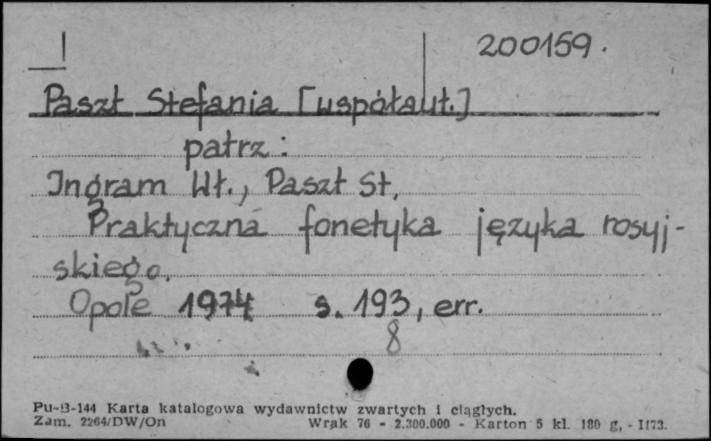 200159.
Paszt Stefania [współaut.]
patrz:
Ingram Wł., Paszt St.
Praktyczna fonetyka języka rosyj-
skiego.
Opole 1974 s. 193, err.
8
Pu-B-144 Karta katalogowa wydawnictw zwartych i ciągłych.
Zam. 2264/DW/On Wrak 76 - 2.300.000 - Karton 5 kl. 180 g, - I173.